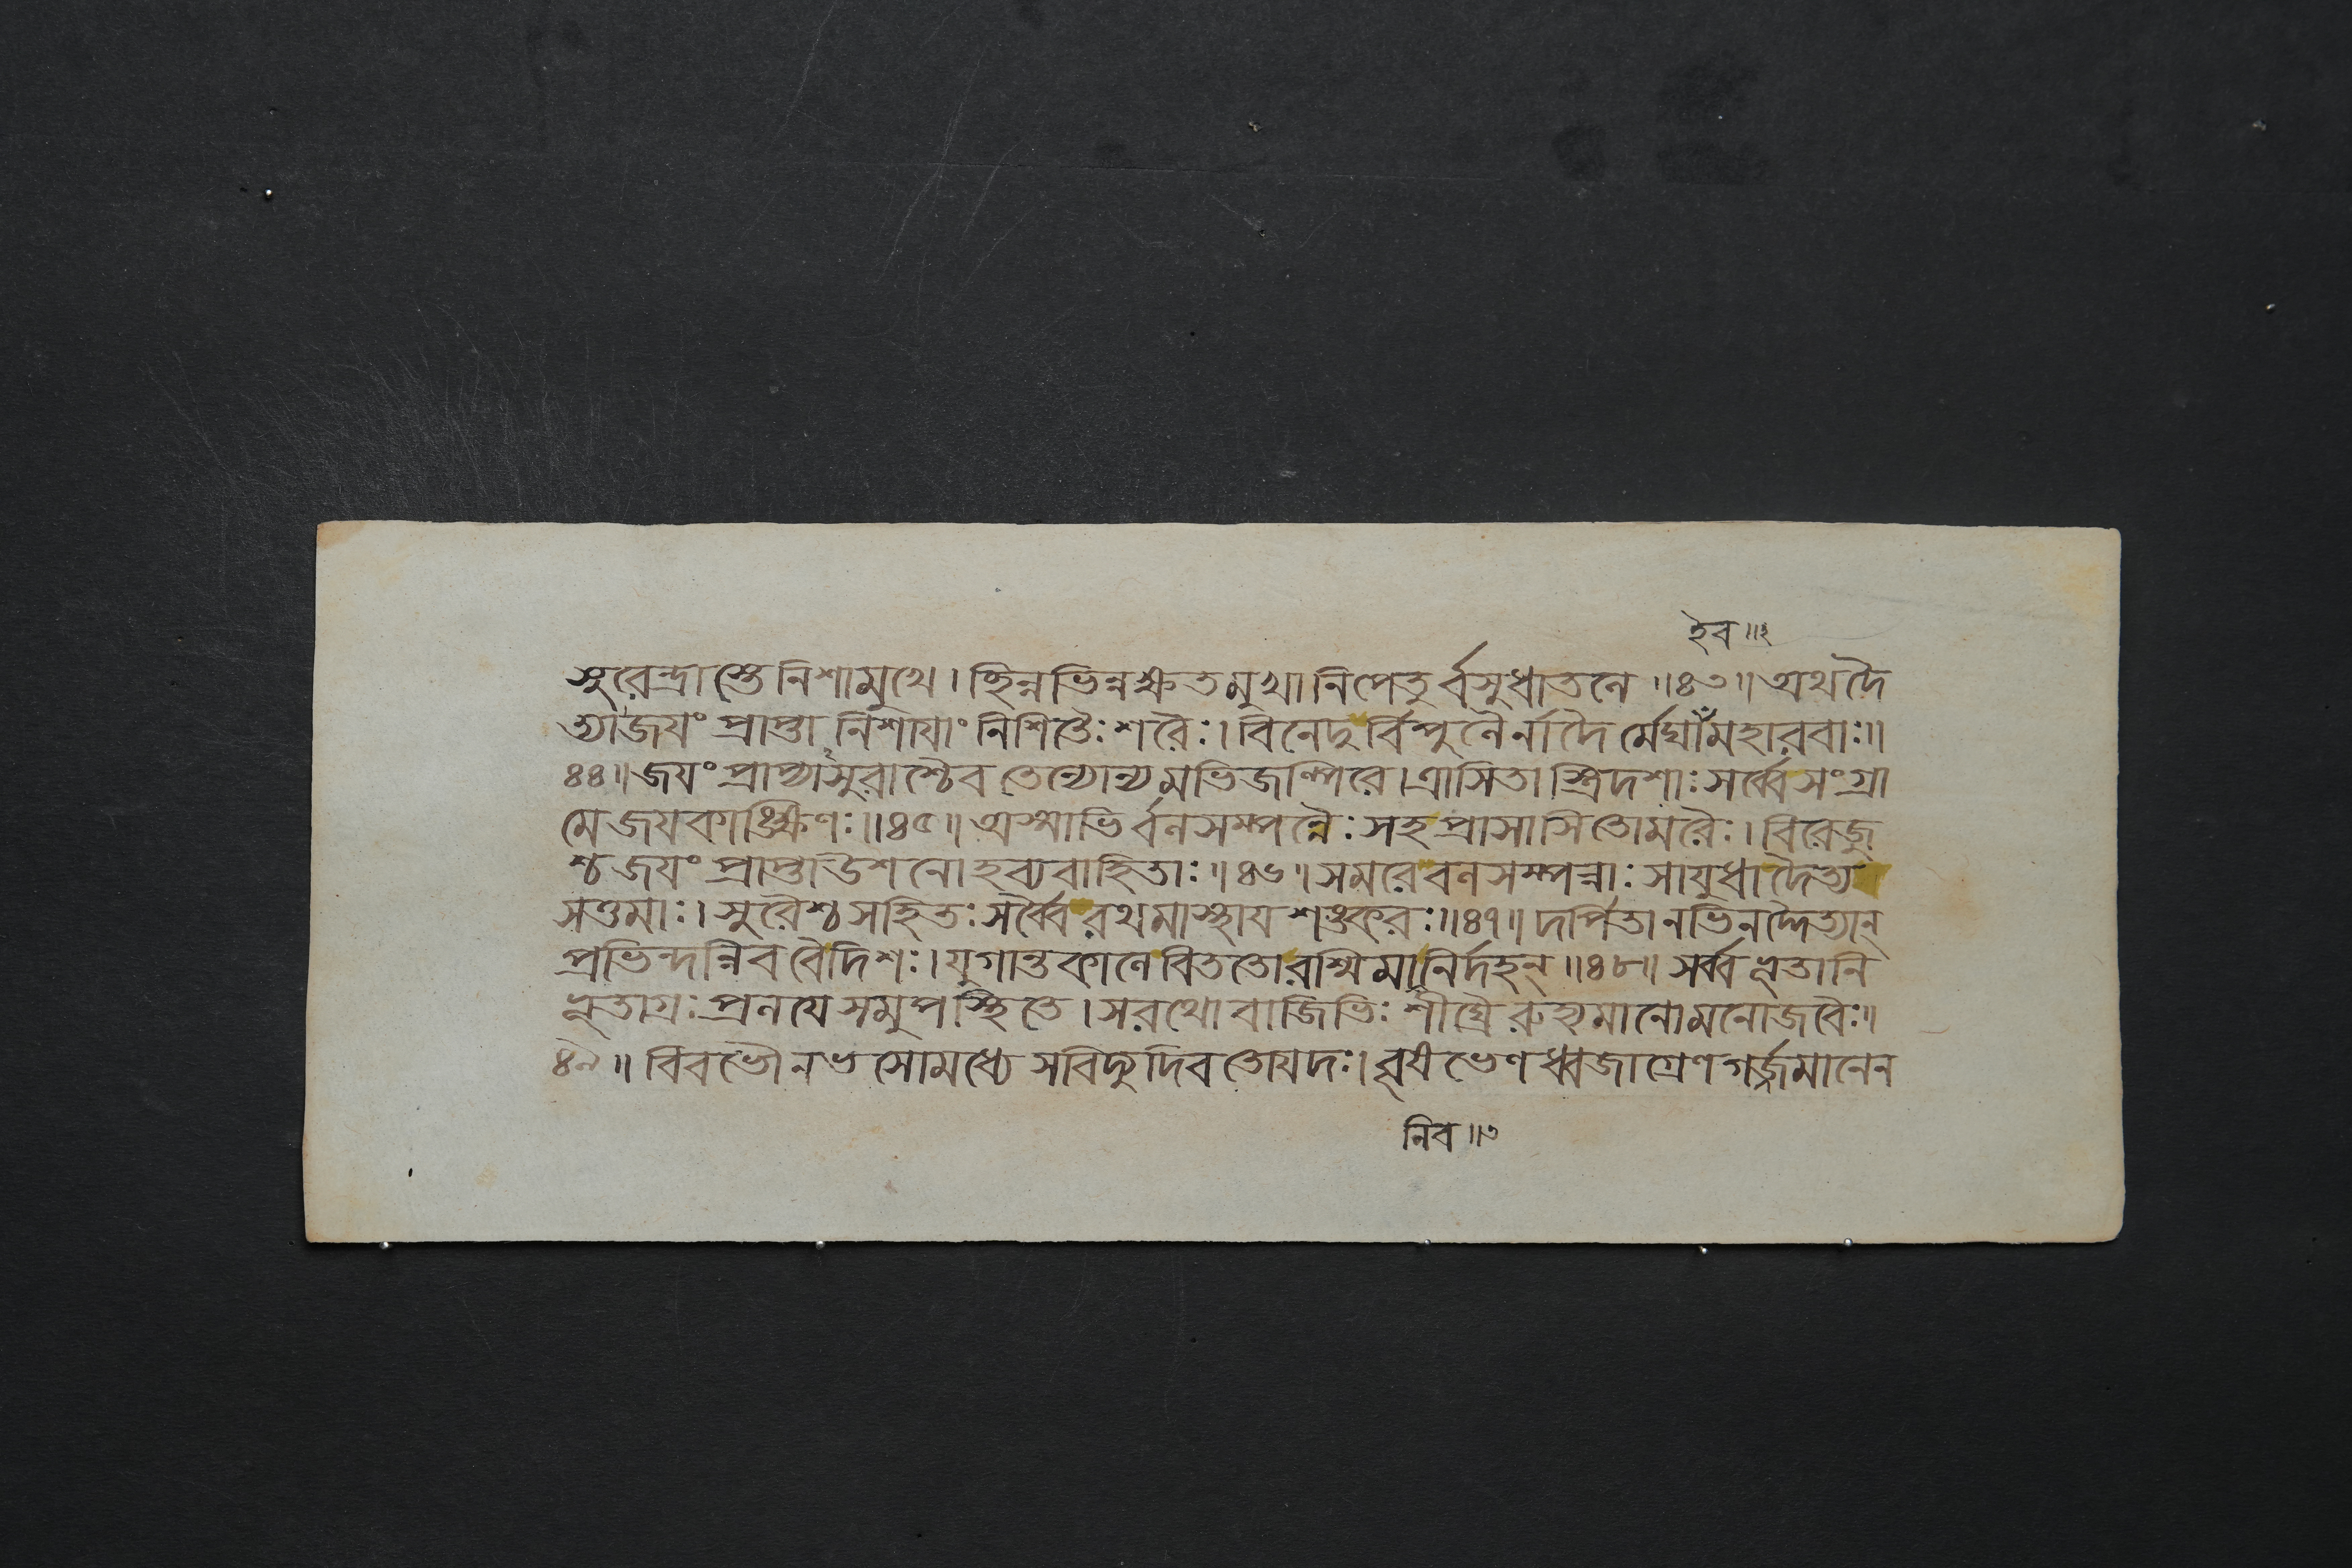 হৈব ॥ ২
সুরেন্দ্রাস্তেনিশামুখে। ছিন্নভিন্নক্ষতমুখানিপেতুর্বসুধাতলে ॥৪৩॥ অথদৈ
ত্যাজয়ং প্রাপ্তা নিশায়াং নিশিতৈঃ শরৈঃ। বিনেদুর্বিপুলৈর্নাদৈর্মেঘাঁমহারবাঃ॥
৪৪॥ জয়ং প্রাপ্যাসুরাশ্চৈব তেন্যোন্যমভিজল্পিরে। ত্রাসিতাস্ত্রিদশাঃ সর্ব্বেসংগ্রা
মেজয়কাঙ্ক্ষিণঃ॥৪৫॥ অস্মাভির্বলসম্পন্নৈঃ সহপ্রাসাসিতোমরৈঃ। বিরেজু
শ্চজয়ং প্রাপ্তাউশনোহব্যবাহিতাঃ॥৪৬॥ সমরেবলসম্পন্নাঃ সায়ুধাদৈত্য
সত্তমাঃ। সুরৈশ্চসহিতঃ সর্ব্বৈরথমাস্থায়শঙ্করঃ॥৪৭॥ দর্পিতানভিনদ্দৈত্যান্
প্রভিন্দন্নিববৈদিশঃ। যুগান্তকালেবিততোরশ্মিমানির্দহন্ ॥৪৮॥ সর্ব্বভূতানি
ভূতাগ্রঃ প্রলয়েসমুপস্থিতে। সরথোবাজিভিঃ শীঘ্রৈরুহ্যমানোমনোজবৈঃ॥
৪৯॥ বিবভৌনভসোমধ্যেসবিদ্যুদিবতোয়দঃ। বৃষভেণধ্বজাগ্রেণগর্জ্জমানেন
নিব ॥ ৩